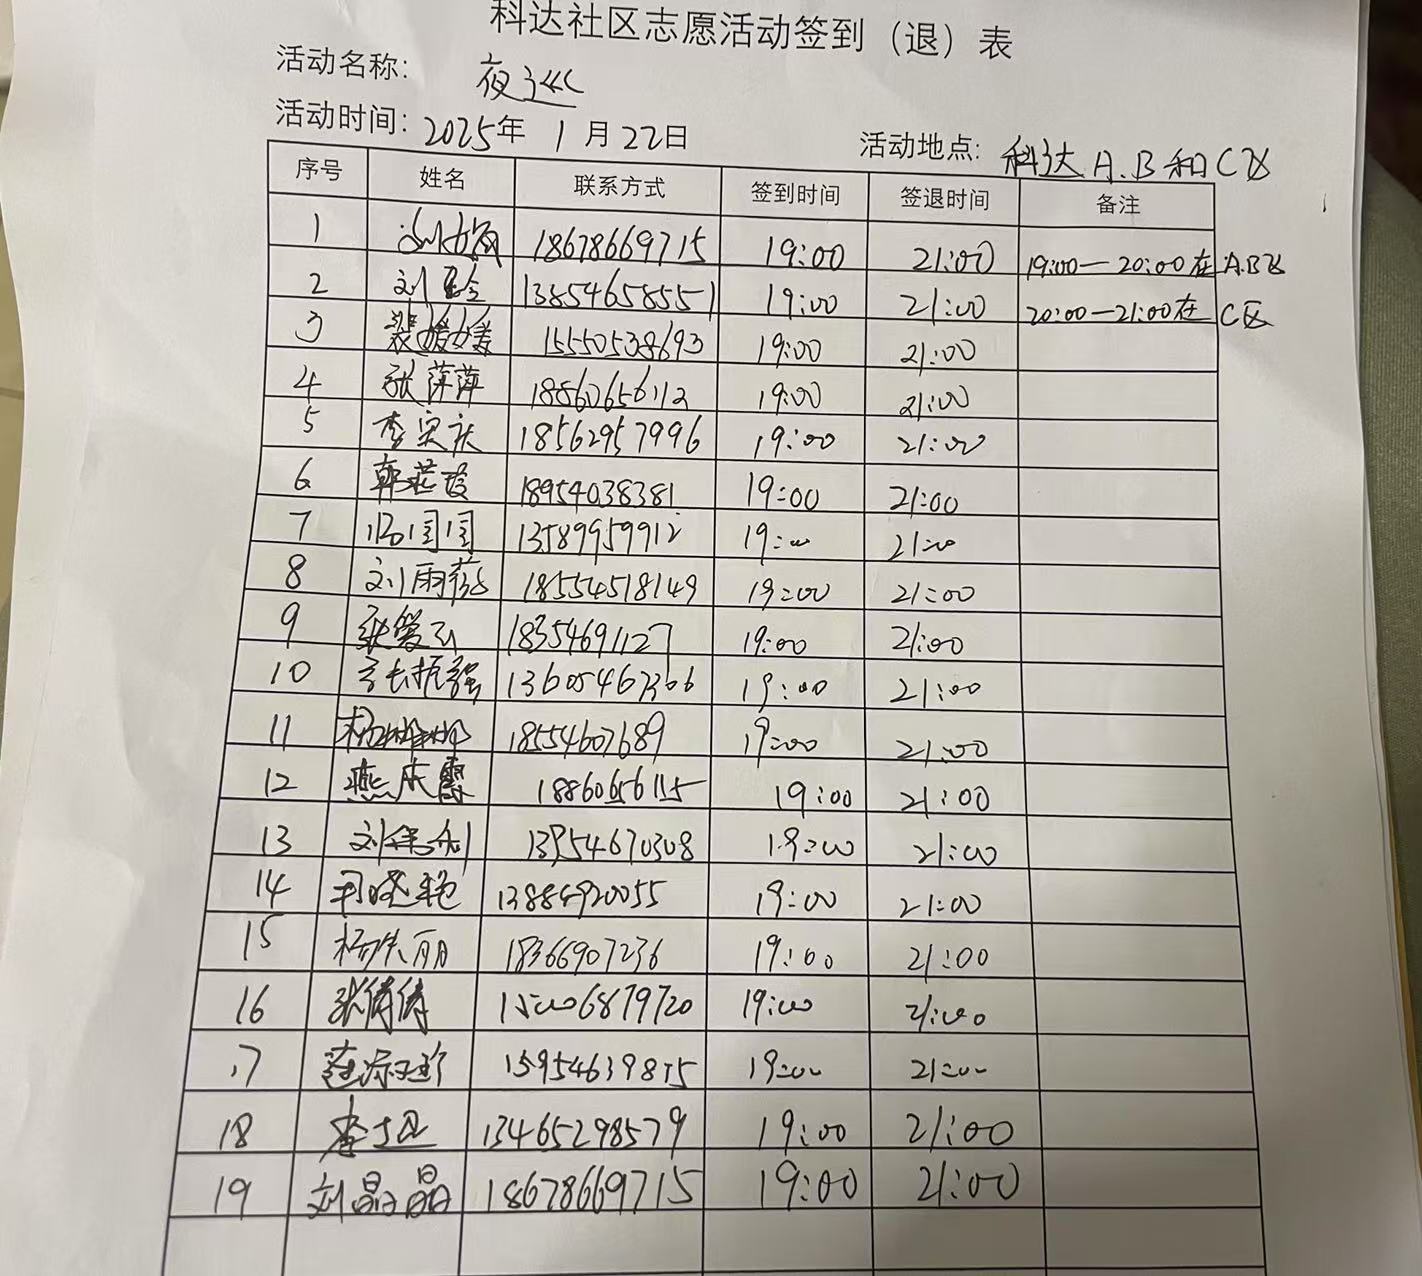 科达社区志愿活动签到（退）表
活动名称： 夜巡
活动时间：2025年 1月22日 活动地点：科达A.B和C区
序号 姓名 联系方式 签到时间 签退时间 备注
1 18678669715 19:00 21:00 19:00—20:00在A.B区
2 刘 13854658551 19:00 21:00 20:00—21:00在C区
3 裴媛媛 15550538693 19:00 21:00
4 张萍萍 18860656112 19:00 21:00
5 李实庆 18562957996 19:00 21:00
6 韩 18954038381 19:00 21:00
7 13589959912 19:00 21:00
8 刘雨 18554518149 19:00 21:00
9 张爱云 18354691127 19:00 21:00
10 13605467366 19:00 21:00
11 杨 18554607689 19:00 21:00
12 燕 18860656115 19:00 21:00
13 刘 13954670308 19:00 21:00
14 13884920055 19:00 21:00
15 杨 丽 18366907236 19:00 21:00
16 张倩倩 15006879720 19:00 21:00
17 15954639875 19:00 21:00
18 李 13465298579 19:00 21:00
19 刘晶晶 18678669715 19:00 21:00